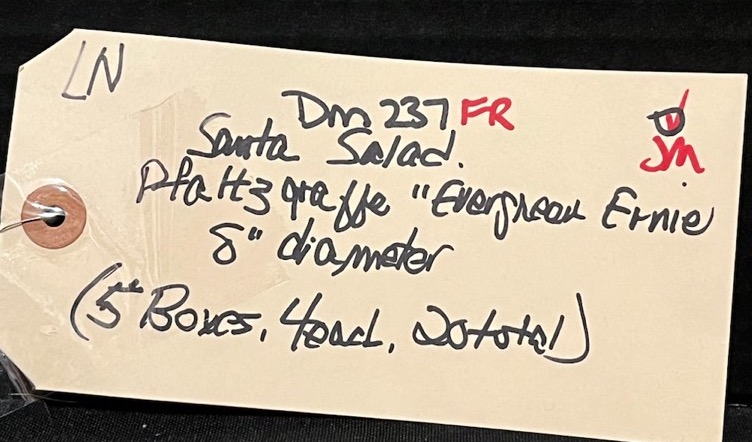 LN
Dm 237 FR
JM
Santa Salad.
Pfaltzgraffe "Evergreen Ernie
8" diameter
(5 Boxes, 4 each, 20 total)